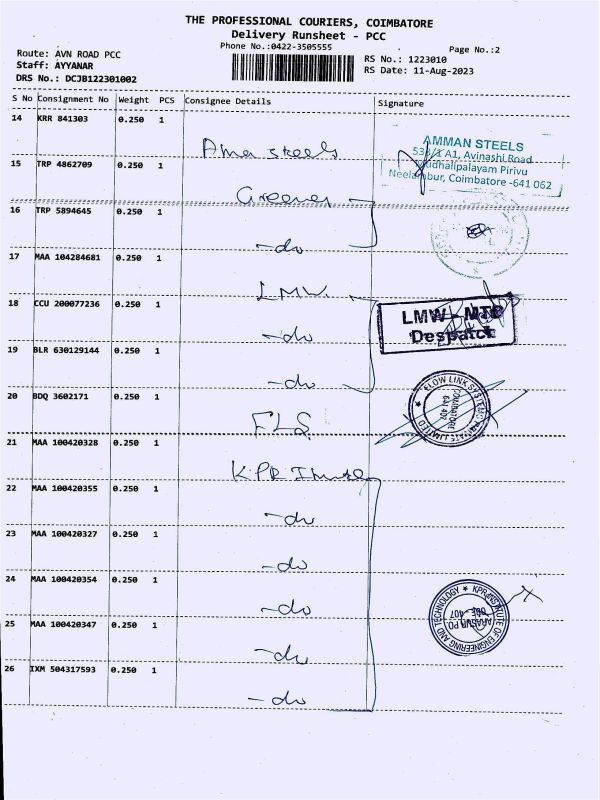 THE PROFESSIONAL COURIERS, COIMBATORE
Delivery Runsheet - PCC
Phone No.:0422-3505555
Page No.:2
Route: AVN ROAD PCC
Staff: AYYANAR
DRS No.: DCJB122301002
RS No.: 1223010
RS Date: 11-Aug-2023
S No Consignment No Weight PCS Consignee Details Signature
14 KRR 841303 0.250 1
Aman steels
AMMAN STEELS
A1, Avinashi Road
Pirivu
Neelambur, Coimbatore -641 062
15 TRP 4862709 0.250 1
16 TRP 5894645 0.250 1
-do
17 MAA 104284681 0.250 1
LMW
18 CCU 200077236 0.250 1
-do
LMW - MTB
Despatch
19 BLR 630129144 0.250 1
-do
20 BDQ 3602171 0.250 1
FLS
FLOW LINK SYSTEMS PRIVATE LIMITED
COIMBATORE
641 407
21 MAA 100420328 0.250 1
KPR
22 MAA 100420355 0.250 1
-do
23 MAA 100420327 0.250 1
-do
24 MAA 100420354 0.250 1
-do
KPR INSTITUTE OF ENGINEERING AND TECHNOLOGY
ARASUR PO
25 MAA 100420347 0.250 1
-do
26 IXM 504317593 0.250 1
-do